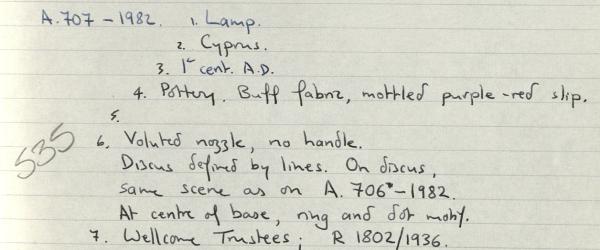 A.707 - 1982. 1. Lamp.
2. Cyprus.
3. 1st cent. A.D.
4. Pottery. Buff fabric, mottled purple-red slip.
5.
535
6. Voluted nozzle, no handle.
Discus defined by lines. On discus,
same scene as on A. 706-1982.
At centre of base, ring and dot motif.
7. Wellcome Trustees; R 1802/1936.